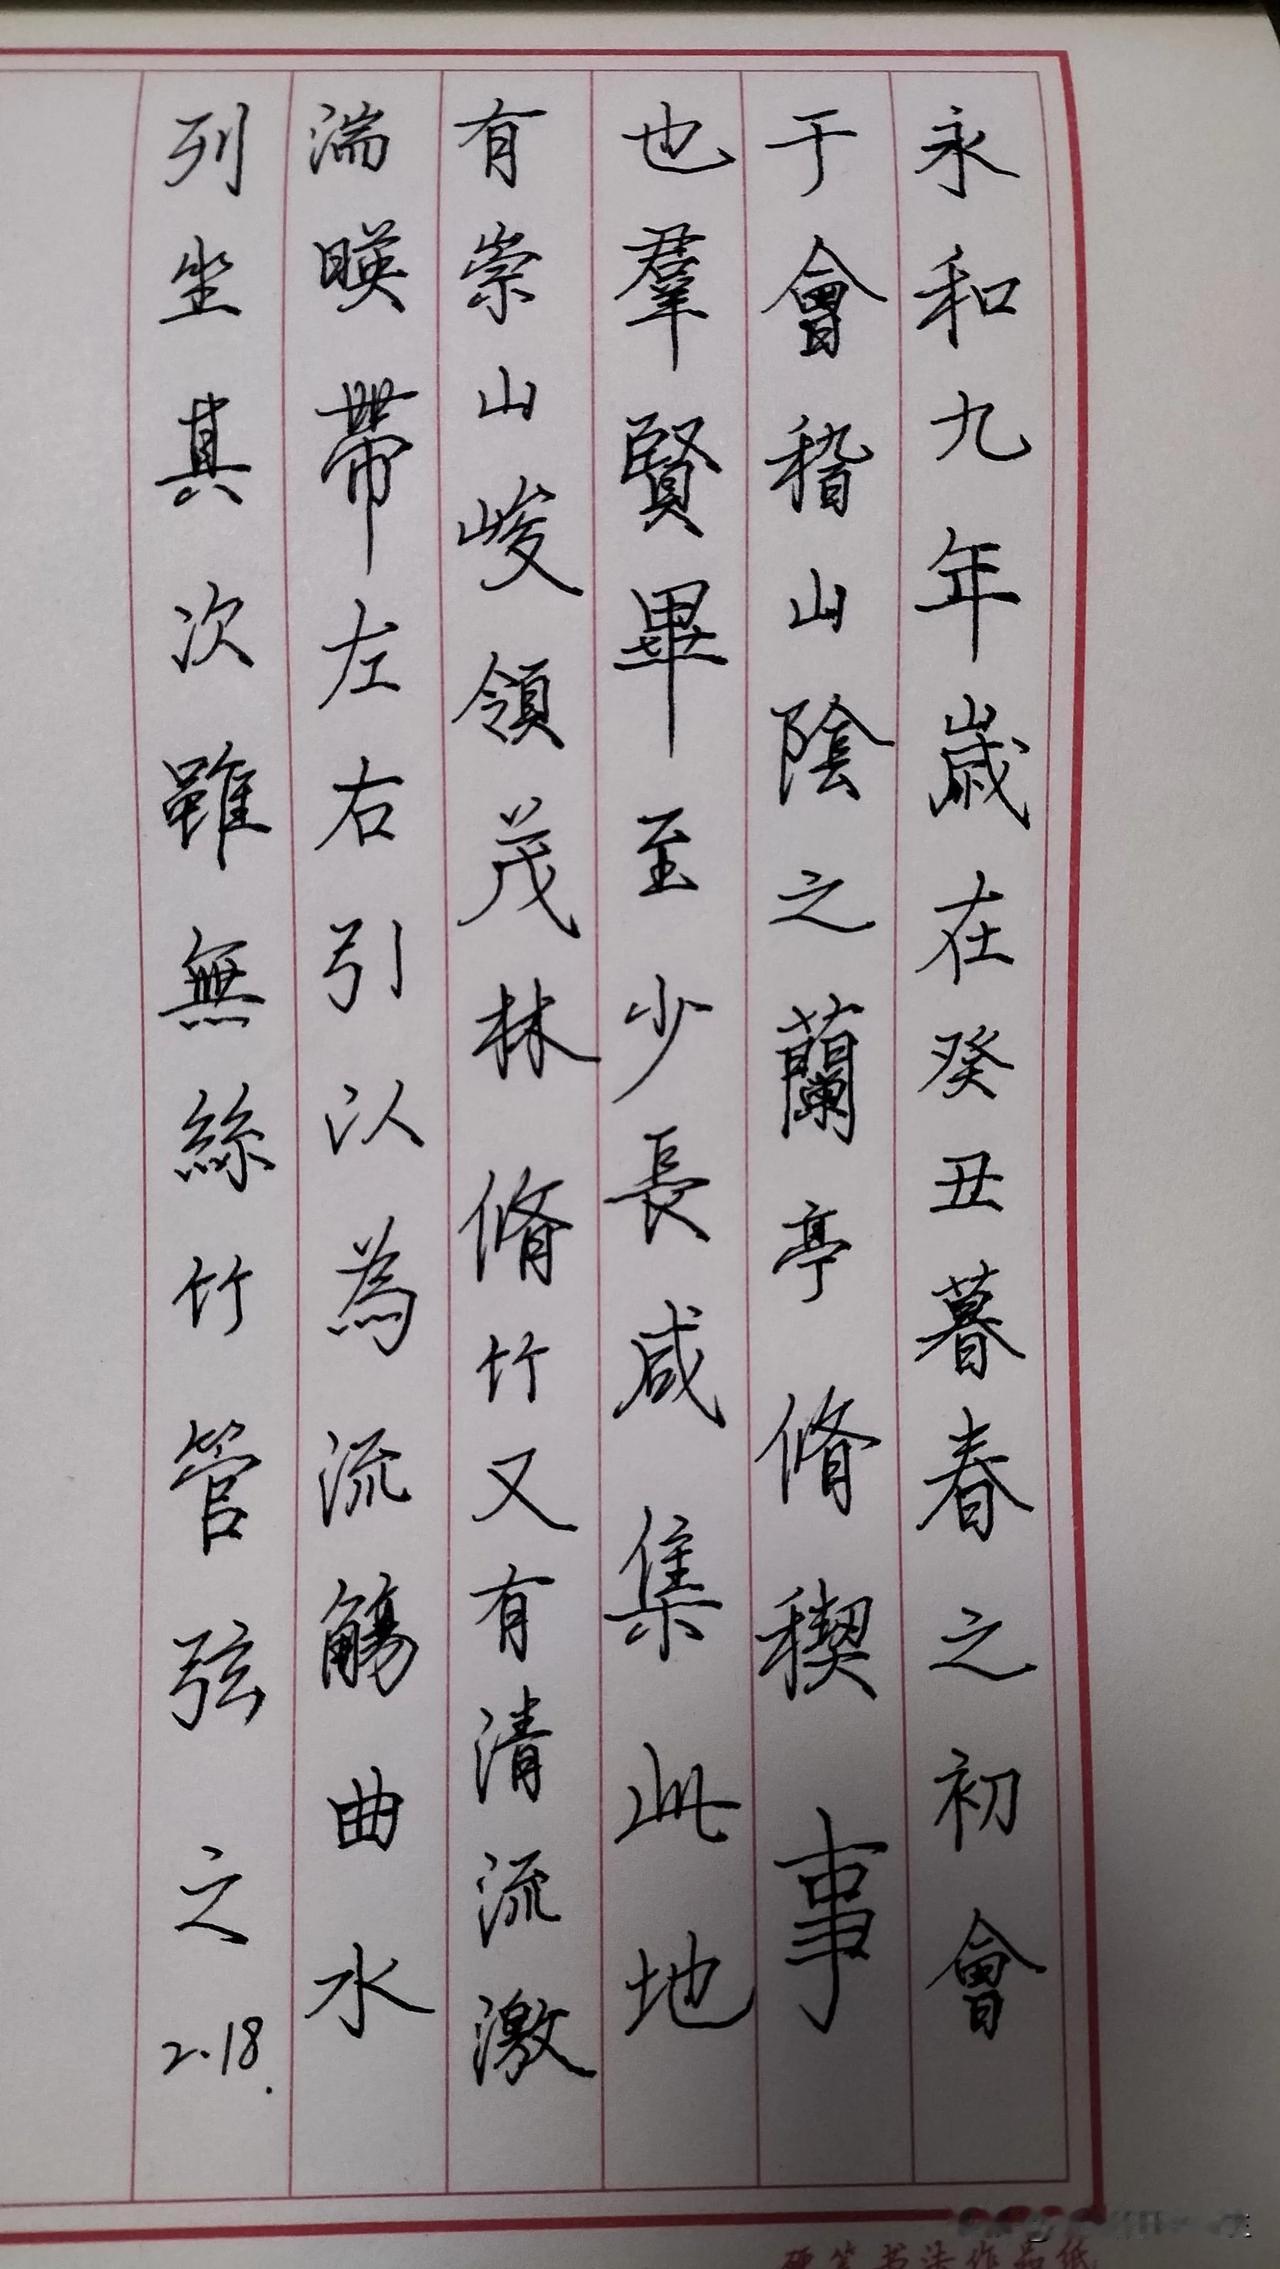 永和九年歲在癸丑暮春之初會
于會稽山陰之蘭亭脩稧事
也羣賢畢至少長咸集此地
有崇山峻領茂林脩竹又有清流激
湍暎帶左右引以為流觴曲水
列坐其次雖無絲竹管弦之
2.18.
硬笔书法作品纸